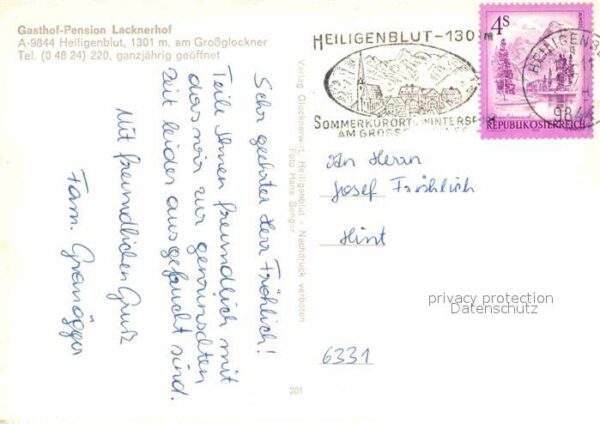 Gasthof-Pension Lacknerhof
A-9844 Heiligenblut, 1301 m, am Großglockner
Tel. (0 48 24) 220, ganzjährig geöffnet
HEILIGENBLUT-130
SOMMERKURORT WINTERSP
AM GROSS
4S
REPUBLIK ÖSTERREICH
HEILIGENB
984
Sehr geehrter Herr Fröhlich!
Teile Ihnen freundlich mit
dass wir zur gewünschten
Zeit leider ausgebucht sind.
Mit freundlichen Gruß
Fam. Granögger
Verlag Glocknerwirt, Heiligenblut - Nachdruck verboten
Foto Hans Senger
201
An Herrn
Josef Fröhlich
Hint
6331
privacy protection
Datenschutz